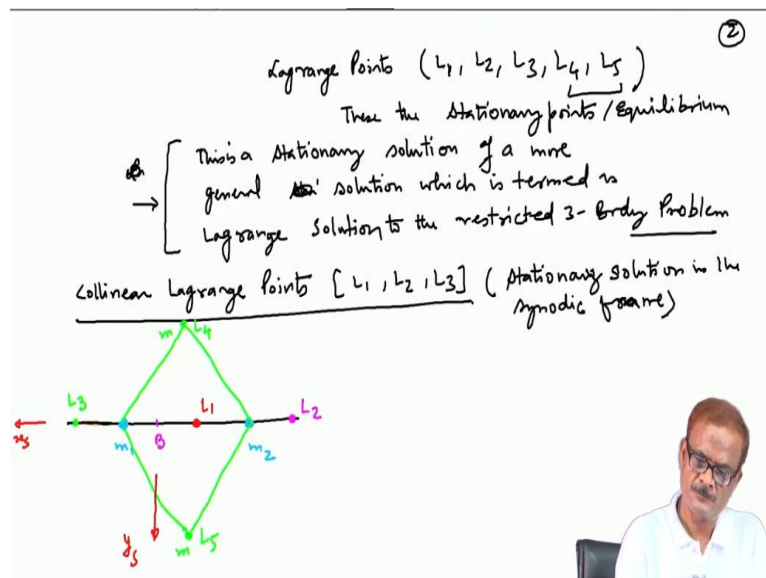 ②
Lagrange Points (L1, L2, L3, L4, L5)
These the stationary points/Equilibrium
This is a stationary solution of a more
general solution which is termed as
Lagrange Solution to the restricted 3-Body Problem
Collinear Lagrange Points [L1, L2, L3] (stationary solution in the
synodic frame)
m L4
L3 L1 L2
xs m1 B m2
ys m L5